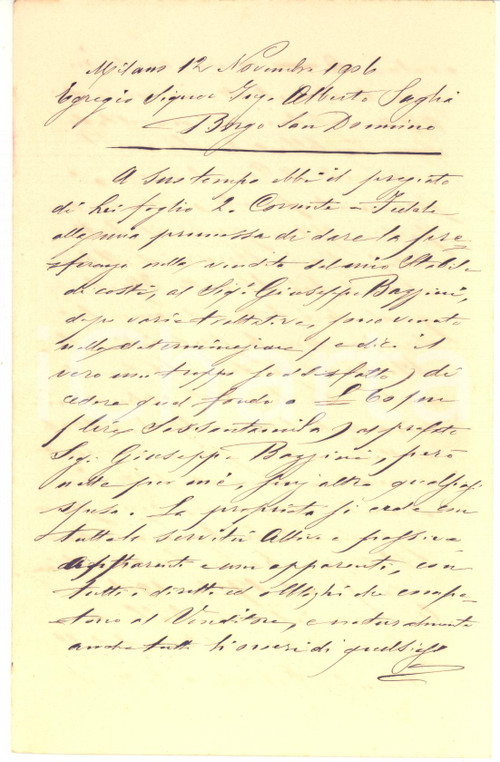 Milano 12 Novembre 1906
Egregio Signor Ing. Alberto Saglia
Borgo San Donnino
A suo tempo ebbi il pregiato
di Lei foglio 2. Corrente - Fedele
alla mia promessa di dare la pre-
ferenza nella vendita del mio Stabile
di costì, al Sigr Giuseppe Bazzini,
dopo varie trattative, sono venuto
nella determinazione (e dico il
vero non troppo soddisfatto) di
cedere quel fondo a £ 60/m
(lire Sessantamila) al prefato
Sigr. Giuseppe Bazzini, però
nette per me, senz'altra qualsiasi
spesa. La proprietà si cede con
tutte le servitù attive e passive
apparenti e non apparenti, con
tutti i diritti ed obblighi che compe-
tono al Venditore, e naturalmente
anche tutti li oneri di qualsiasi